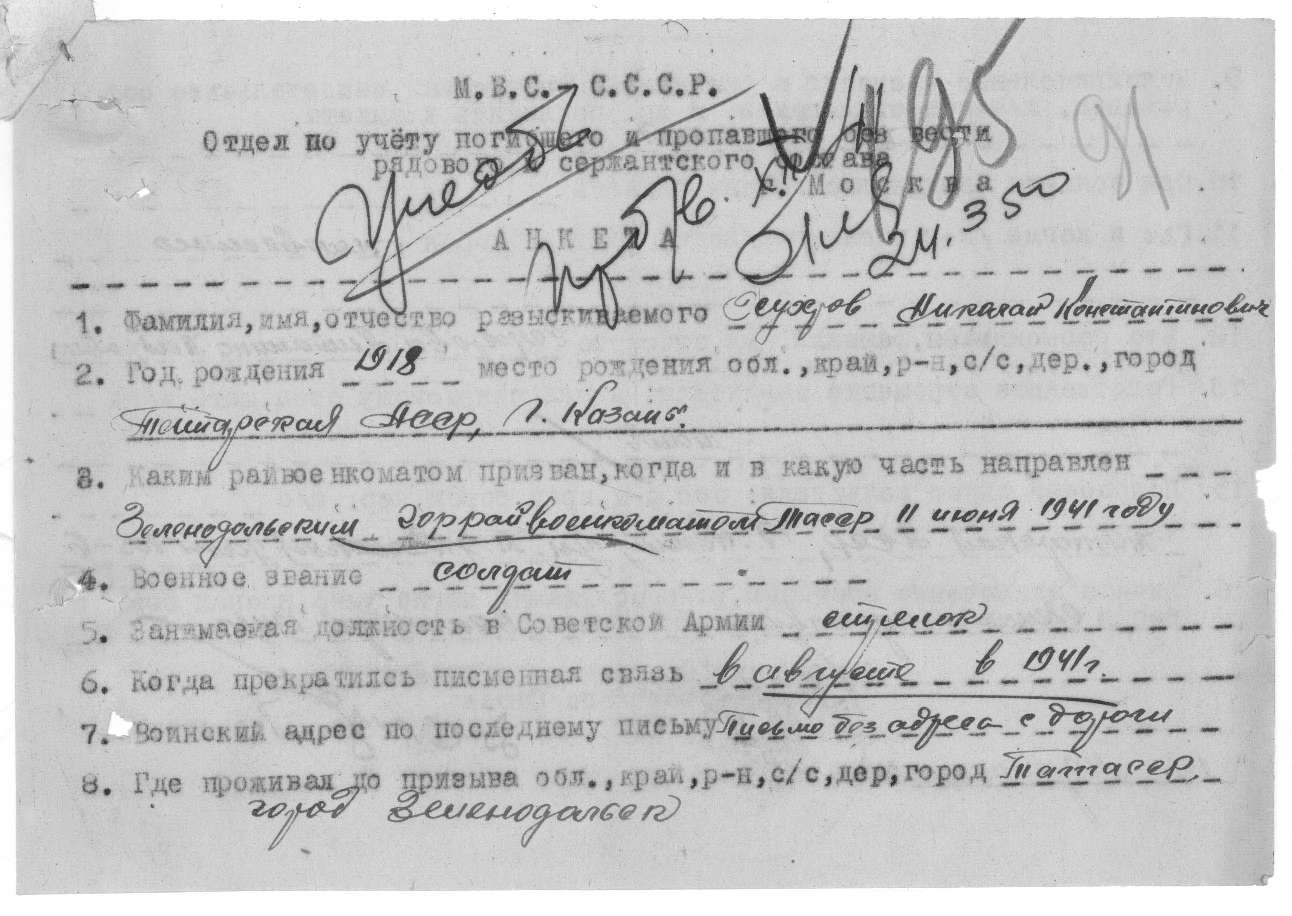 М.В.С. С.С.С.Р.
Отдел по учёту погибшего и пропавшего без вести
рядового и сержантского состава
г. Москва
24.3 50
АНКЕТА
1. Фамилия,имя,отчество разыскиваемого Сухров Николай Константинович
2. Год рождения 1918 место рождения обл.,край,р-н,с/с,дер.,город
Татарская АССР, г. Казань.
3. Каким райвоенкоматом призван,когда и в какую часть направлен
Зеленодольским горрайвоенкоматом ТАССР 11 июня 1941 году
4. Военное звание солдат
5. Занимаемая должность в Советской Армии стрелок
6. Когда прекратилсь писменная связь в августе в 1941г.
7. Воинский адрес по последнему письму Письмо без адреса с дороги
8. Где проживал до призыва обл.,край,р-н,с/с,дер,город ТАТАССР
город Зеленодольск